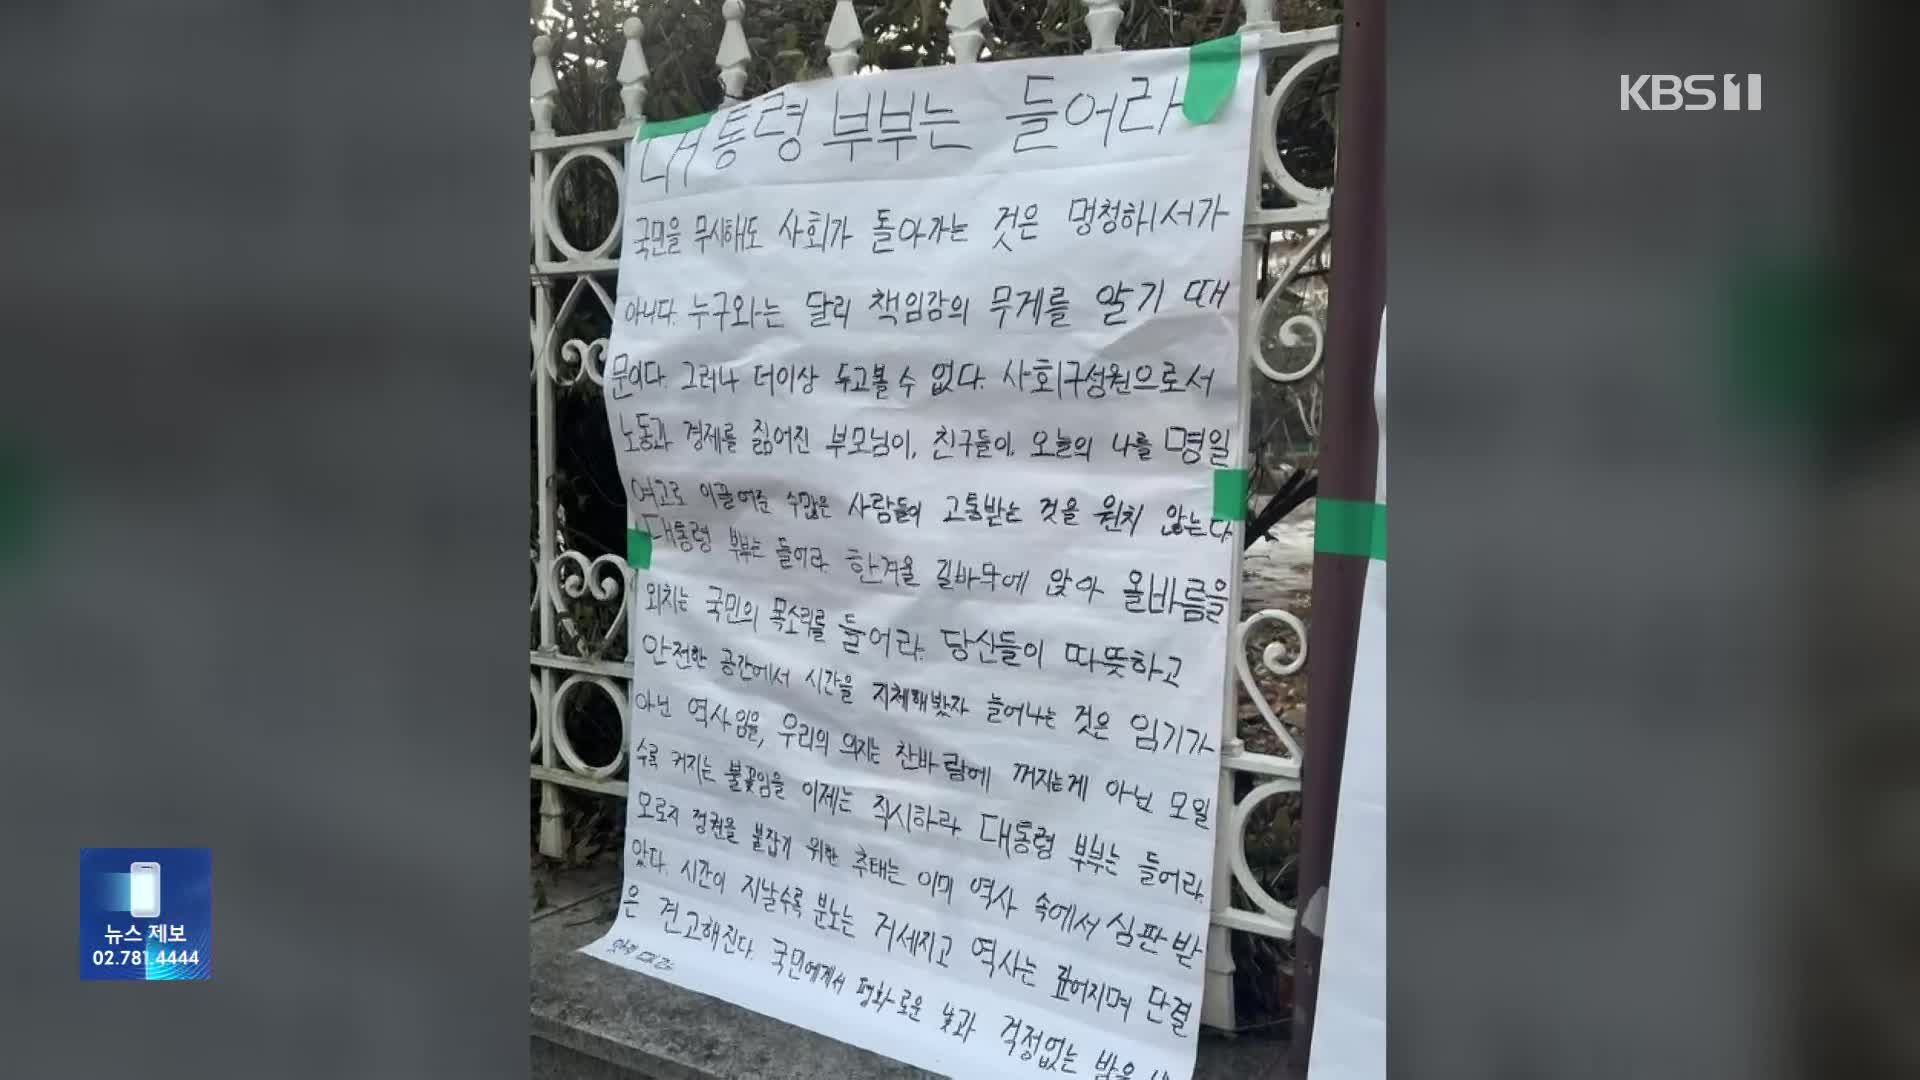 KBS 1
대통령 부부는 들어라
국민을 무시해도 사회가 돌아가는 것은 멍청해서가
아니다. 누구와는 달리 책임감의 무게를 알기 때
문이다. 그러나 더이상 두고볼 수 없다. 사회구성원으로서
노동과 경제를 짊어진 부모님이, 친구들이, 오늘의 나를 명일
여고로 이끌어준 수많은 사람들이 고통받는 것을 원치 않는다
대통령 부부는 들어라. 한겨울 길바닥에 앉아 올바름을
외치는 국민의 목소리를 들어라. 당신들이 따뜻하고
안전한 공간에서 시간을 지체해봤자 늘어나는 것은 임기가
아닌 역사임을, 우리의 의지는 찬바람에 꺼지는게 아닌 모일
수록 커지는 불꽃임을 이제는 직시하라. 대통령 부부는 들어라.
오로지 정권을 붙잡기 위한 추태는 이미 역사 속에서 심판 받
았다. 시간이 지날수록 분노는 거세지고 역사는 깊어지며 단결
은 견고해진다. 국민에게서 평화로운 낮과 걱정없는 밤을
뉴스 제보
02.781.4444